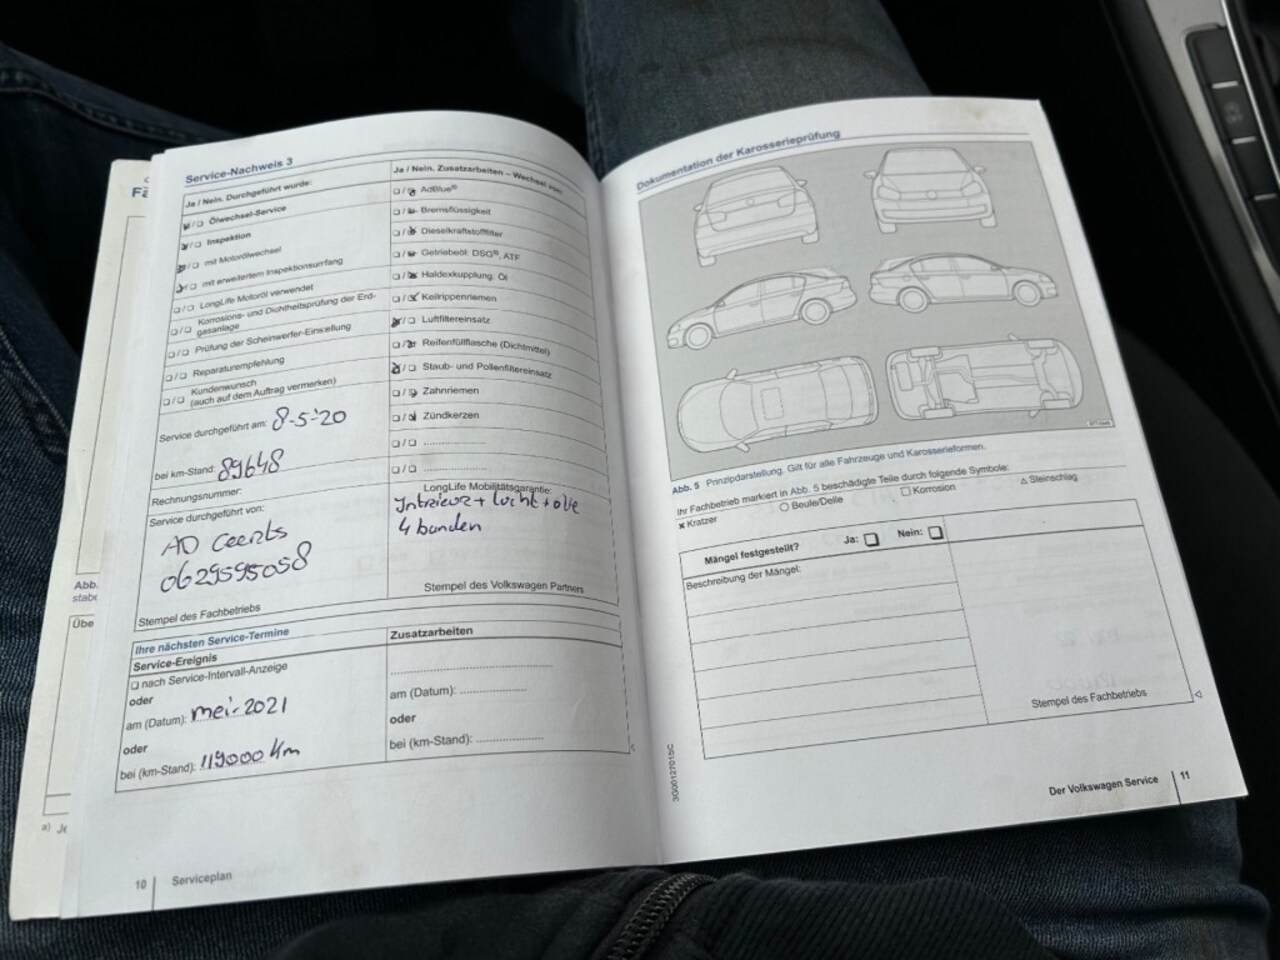 Service-Nachweis 3
Ja / Nein. Durchgeführt wurde:
Ölwechsel-Service
Inspektion
mit Motorölwechsel
mit erweitertem Inspektionsumfang
LongLife Motoröl verwendet
Korrosions- und Dichtheitsprüfung der Erd-
gasanlage
Prüfung der Scheinwerfer-Einstellung
Reparaturempfehlung
Kundenwunsch
(auch auf dem Auftrag vermerken)
Service durchgeführt am: 8-5-'20
bei km-Stand: 89648
Rechnungsnummer:
Service durchgeführt von:
AD
0629595058
Stempel des Fachbetriebs
Ja / Nein. Zusatzarbeiten – Wechsel von:
AdBlue®
Bremsflüssigkeit
Dieselkraftstofffilter
Getriebeöl: DSG®, ATF
Haldexkupplung: Öl
Keilrippenriemen
Luftfiltereinsatz
Reifenfüllflasche (Dichtmittel)
Staub- und Pollenfiltereinsatz
Zahnriemen
Zündkerzen
LongLife Mobilitätsgarantie:
Interieur + lucht + olie
4 banden
Stempel des Volkswagen Partners
Ihre nächsten Service-Termine
Service-Ereignis
nach Service-Intervall-Anzeige
oder
am (Datum): mei-2021
oder
bei (km-Stand): 119000 km
Zusatzarbeiten
am (Datum):
oder
bei (km-Stand):
10 Serviceplan
Abb.
Übe
a)
Dokumentation der Karosserieprüfung
Abb. 5 Prinzipdarstellung. Gilt für alle Fahrzeuge und Karosserieformen.
Ihr Fachbetrieb markiert in Abb. 5 beschädigte Teile durch folgende Symbole:
× Kratzer ○ Beule/Delle □ Korrosion △ Steinschlag
Mängel festgestellt? Ja: Nein:
Beschreibung der Mängel:
Stempel des Fachbetriebs
3G0012701SC
Der Volkswagen Service 11